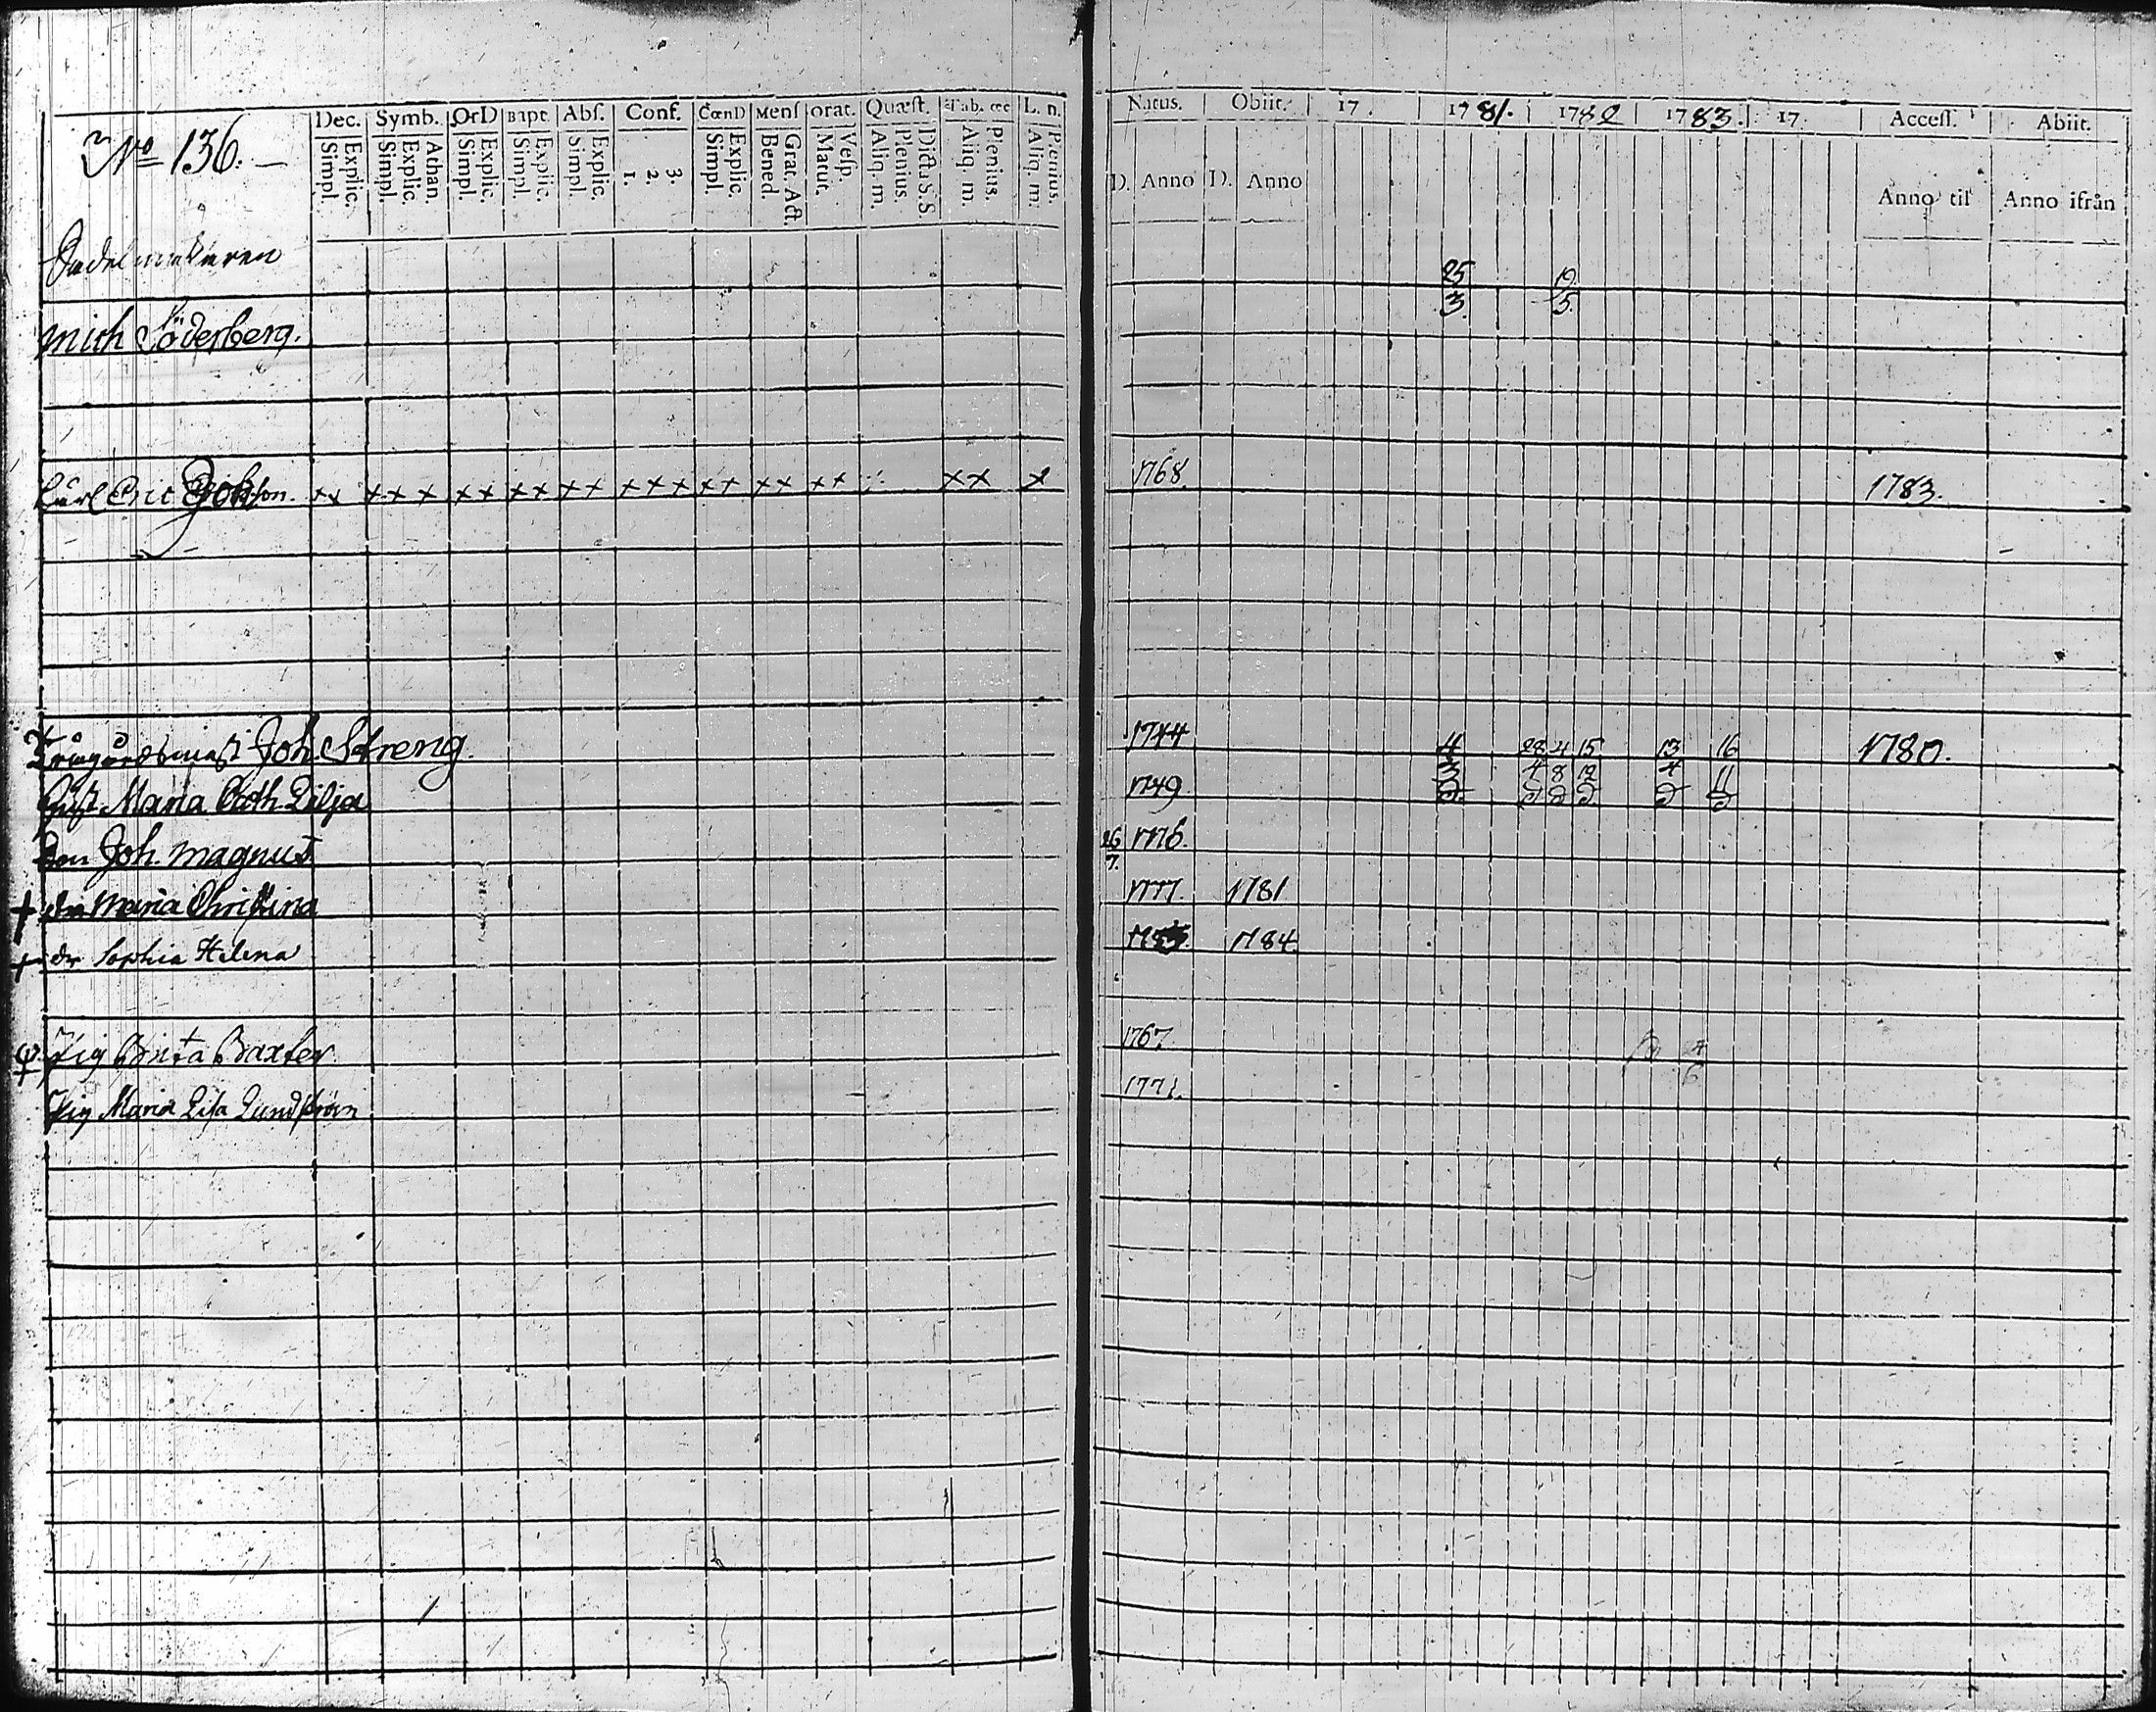 Dec. Symb. OrD Bapt. Abſ. Conf. CœnD Menſ orat. Quæſt. L. n. Natus. Obiit. 17 . 1781. 1782 1783. 17. Acceſſ. Abiit.
No 136.
Simpl. Explic. Simpl. Explic. Athan. Simpl. Explic. Simpl. Explic. Simpl. Explic. 1. 2. 3. Simpl. Explic. Bened. Grat. Act. Matut. Veſp. Aliq. m. Plenius. Dict. S. S Aliq. m. Plenius. Aliq. m. Plenius. D. Anno D. Anno Anno til Anno ifrån
Sadelmakaren
25 19
3. 5.
Mich Söderberg.
Carl Eric Joh:son. xx xxx xx xx xx xxx xx xx xx xx x 1768. 1783.
Trägårdsmäst Joh. Streng. 1744 4 28 4 15 13 16 1780.
3 4 8 12 4 11
Hust Maria Cath Lilja 1749
Son Joh. Magnus 26 1776.
7.
+ dr Maria Christina 1777. 1781
+ dr Sophia Helena 1784
Pig Brita Baxter 1767
Pig Maria Lisa Lundström